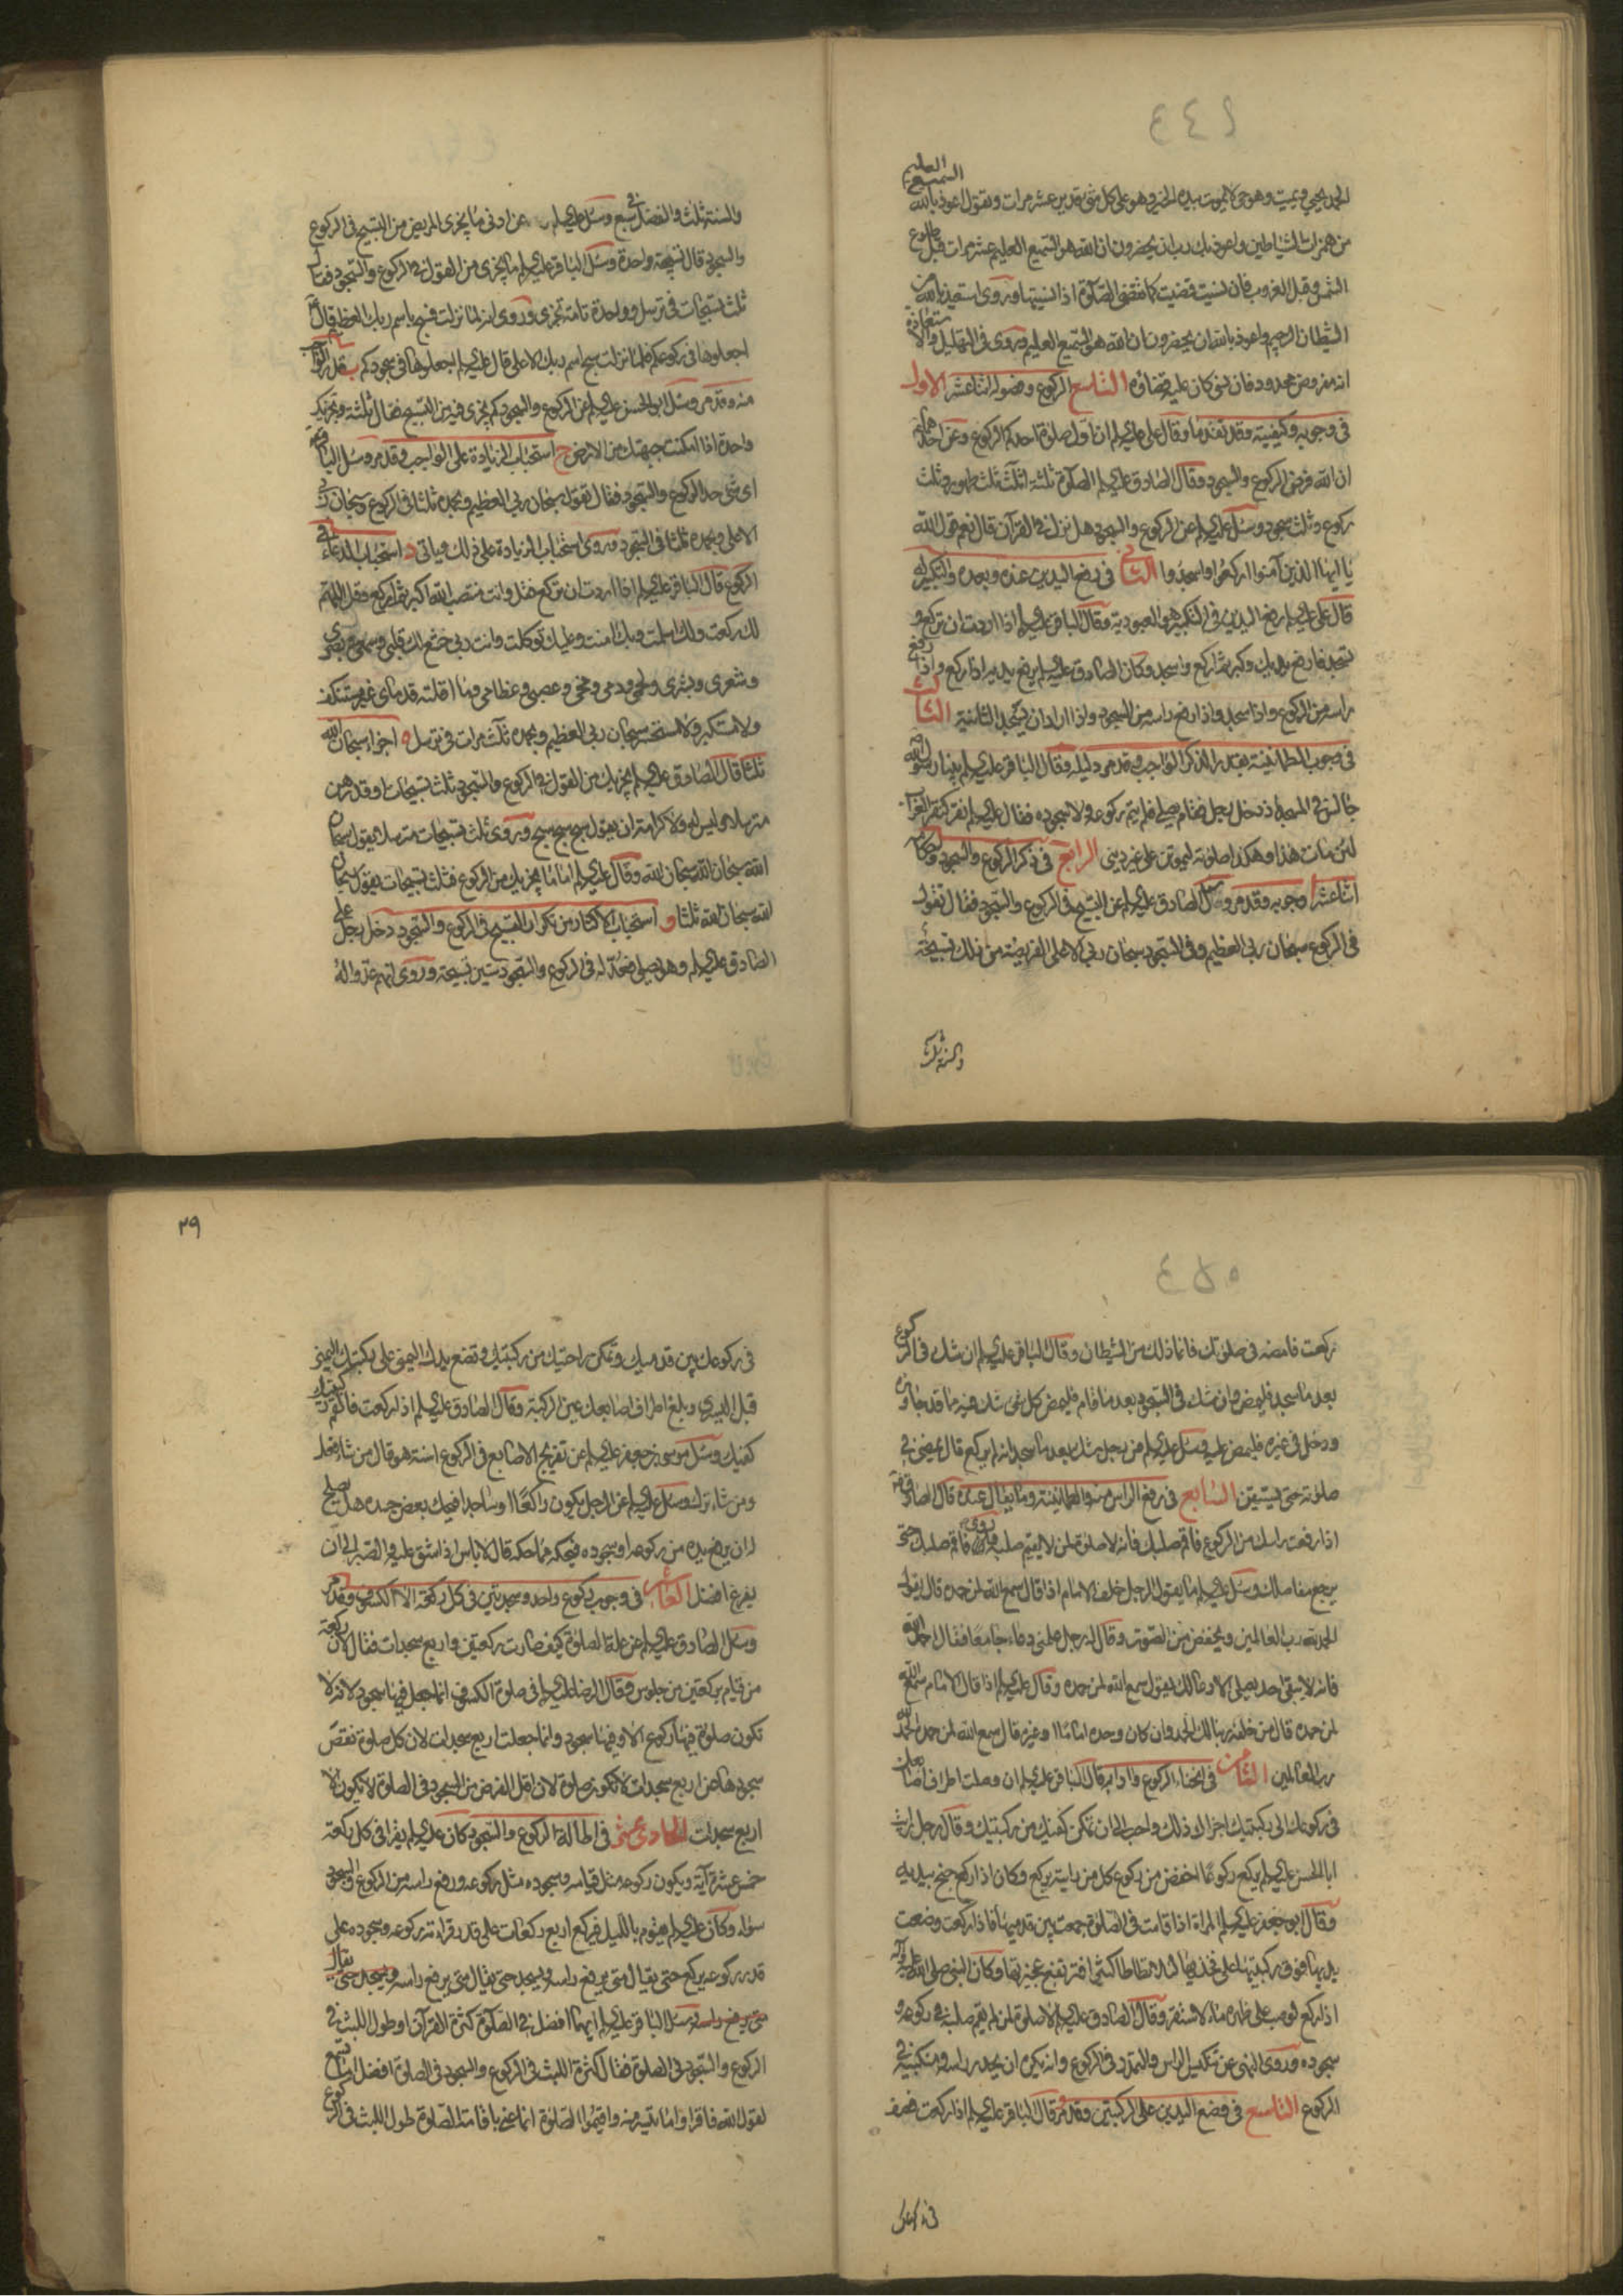 ٤٤٩
السميع العليم
الحمد يحيي ويميت وهو حي لا يموت بيده الخير وهو على كل شئ قدير عشر مرات وتقول اعوذ بالله
من همزات الشياطين واعوذ بك رب ان يحضرون ان الله هو السميع العليم عشر مرات قبل طلوع
الشمس وقبل الغروب فان نسيت قضيت كما تقضى الصلوة اذا نسيتها وروى استعيذ بالله من
الشيطان الرجيم واعوذ بالله ان يحضرون ان الله هو السميع العليم وروى في التهليل والاستعاذة
انه مفروض محدود فان نسى كان عليه قضاؤه الركوع وفصوله اثنا عشر الاول
في وجوبه وكيفيته وقد تقدما وقال على عليه السلام ان اول صلوة احدكم الركوع وعن احدهما
ان الله فرض الركوع والسجود وقال الصادق عليه السلام الصلوة ثلثة اثلث ثلث طهور وثلث
ركوع وثلث سجود وسئل عليه السلام عن الركوع والسجود هل نزل في القرآن قال نعم قول الله
يا ايها الذين آمنوا اركعوا واسجدوا الثاني في رفع اليدين عنده وبعده والتكبير له
قال على عليه السلام رفع اليدين في التكبير هو العبودية وقال الباقر عليه السلام اذا اردت ان تركع و
تسجد فارفع يديك وكبر ثم اركع واسجد وكان الصادق عليه السلام يرفع يديه اذا ركع واذا رفع
راسه من الركوع واذا سجد واذا رفع راسه من السجود واذا اراد ان يسجد الثانية الثالث
في وجوب الطمانينة بقدر الذكر الواجب وقد مر دليله وقال الباقر عليه السلام بينا رسول الله
جالس في المسجد اذ دخل رجل فقام يصلي فلم يتم ركوعه ولا سجوده فقال عليه السلام نقر كنقر الغراب
لئن مات هذا وهكذا صلوته ليموتن على غير ديني الرابع في ذكر الركوع والسجود واحكامه
اثنا عشر ا وجوبه وقد مر وسئل الصادق عليه السلام عن التسبيح في الركوع والسجود فقال تقول
في الركوع سبحان ربي العظيم وفي السجود سبحان ربي الاعلى الفريضة من ذلك تسبيحة
والسنة ثلث
والسنة ثلث والفضل في سبع وسئل عليه السلام عن ادنى ما يجزى المريض من التسبيح في الركوع
والسجود قال تسبيحة واحدة وسئل الباقر عليه السلام ما يجزى من القول في الركوع والسجود فقال
ثلث تسبيحات في ترسل وواحدة تامة تجزى وروى انه لما نزلت فسبح باسم ربك العظيم قال
اجعلوها في ركوعكم فلما نزلت سبح اسم ربك الاعلى قال عليه السلام اجعلوها في سجودكم ب قدر الواجب
منه وقد مر وسئل ابو الحسن عليه السلام عن الركوع والسجود كم يجزى فيه من التسبيح فقال ثلثة وتجزيك
واحدة اذا امكنت جبهتك من الارض ج استحباب الزيادة على الواجب وقد مر وسئل الباقر
اى شئ حد الركوع والسجود فقال تقول سبحان ربي العظيم وبحمده ثلثا في الركوع وسبحان ربي
الاعلى وبحمده ثلثا في السجود وروى استحباب الزيادة على ذلك وياتى د استحباب الدعاء في
الركوع قال الباقر عليه السلام اذا اردت ان تركع فقل وانت منتصب الله اكبر ثم اركع وقل اللهم
لك ركعت ولك اسلمت وبك امنت وعليك توكلت وانت ربي خشع لك قلبي وسمعي وبصري
وشعري وبشري ولحمي ودمي ومخي وعصبي وعظامي وما اقلته قدماي غير مستنكف
ولا مستكبر ولا مستحسر سبحان ربي العظيم وبحمده ثلث مرات في ترسل ه اجزاء سبحان الله
ثلثا قال الصادق عليه السلام يجزيك من القول في الركوع والسجود ثلث تسبيحات او قدرهن
مترسلا وليس له ولا كرامة ان يقول سبح سبح سبح وروى ثلث تسبيحات مترسلا يقول سبحان
الله سبحان الله سبحان الله وقال عليه السلام اما ما يجزيك من الركوع فثلث تسبيحات يقول سبحان
الله سبحان الله ثلثا و استحباب الاكثار من تكرار التسبيح في الركوع والسجود دخل رجل على
الصادق عليه السلام وهو يصلي فعد له في الركوع والسجود ستين تسبيحة وروى انهم عدوا له
٤٥٠
ركعت فامضه في صلوتك فانما ذلك من الشيطان وقال الباقر عليه السلام ان شك في الركوع
بعد ما سجد فليمض وان شك في السجود بعد ما قام فليمض كل شئ شك فيه مما قد جاوزه
ودخل في غيره فليمض عليه وسئل عليه السلام عن رجل شك بعد ما سجد انه لم يركع قال يمضى في
صلوته حتى يستيقن السابع في رفع الراس منه والطمانينة وما يقال عنده قال الصادق
اذا رفعت راسك من الركوع فاقم صلبك فانه لا صلوة لمن لا يقيم صلبه وروى فاقم صلبك حتى
يرجع مفاصلك وسئل عليه السلام ما يقول الرجل خلف الامام اذا قال سمع الله لمن حمده قال يقول
الحمد لله رب العالمين ويخفض من الصوت وقال له رجل علمنى دعاء جامعا فقال احمد الله
فانه لا يبقى احد يصلي الا دعا لك يقول سمع الله لمن حمده وقال عليه السلام اذا قال الامام سمع الله
لمن حمده قال من خلفه ربنا لك الحمد وان كان وحده اماما او غيره قال سمع الله لمن حمده الحمد لله
رب العالمين الثامن في انحناء الركوع وآدابه قال الباقر عليه السلام ان وصلت اطراف اصابعك
في ركوعك الى ركبتيك اجزاك ذلك واحب الى ان تمكن كفيك من ركبتيك وقال رجل رايت
ابا الحسن عليه السلام يركع ركوعا اخفض من ركوع كل من رايته يركع وكان اذا ركع جنح بيديه
وقال ابو جعفر عليه السلام المراة اذا قامت في الصلوة جمعت بين قدميها فاذا ركعت وضعت
يديها فوق ركبتيها على فخذيها لئلا تطاطا كثيرا فترتفع عجيزتها وكان النبي صلى الله عليه وآله
اذا ركع لو صب على ظهره ماء لاستقر وقال الصادق عليه السلام لا صلوة لمن لم يقم صلبه في ركوعه و
سجوده وروى النهى عن تنكيس الراس والتمدد في الركوع وانه يكره ان يحدر راسه ومنكبيه في
الركوع التاسع في وضع اليدين على الركبتين وقد مر قال الباقر عليه السلام اذا ركعت فصف
في ركوعك
٢٩
في ركوعك بين قدميك وتمكن راحتيك من ركبتيك وتضع يدك اليمنى على ركبتك اليمنى
قبل اليسرى وبلغ اطراف اصابعك عين الركبة وقال الصادق عليه السلام اذا ركعت فالقم ركبتيك
كفيك وسئل موسى بن جعفر عليه السلام عن تفريج الاصابع في الركوع اسنة هو قال من شاء فعل
ومن شاء ترك وسئل عليه السلام عن الرجل يكون راكعا او ساجدا فيحكه بعض جسده هل يصلح
له ان يرفع يده من ركوعه او سجوده فيحكه مما حكه قال لا باس اذا شق عليه والصبر الى ان
يفرغ افضل العاشر في وجوب ركوع واحد وسجدتين في كل ركعة الا الكسوف وقد مر
وسئل الصادق عليه السلام عن علة الصلوة كيف صارت ركعتين واربع سجدات فقال لان ركعة
من قيام بركعتين من جلوس وقال الرضا عليه السلام في صلوة الكسوف انما جعل فيها سجود لانه لا
تكون صلوة فيها ركوع الا وفيها سجود وانما جعلت اربع سجدات لان كل صلوة نقص
سجودها من اربع سجدات لا تكون صلوة لان اقل الفرض من السجود في الصلوة لا يكون الا
اربع سجدات الحادي عشر في اطالة الركوع والسجود كان عليه السلام يقرا في كل ركعة
خمس عشرة آية ويكون ركوعه مثل قيامه وسجوده مثل ركوعه ورفع راسه من الركوع والسجود
سواء وكان عليه السلام يقوم بالليل فيركع اربع ركعات على قدر قراءته ركوعه وسجوده على
قدر ركوعه يركع حتى يقال متى يرفع راسه ويسجد حتى يقال متى يرفع راسه ويسجد حتى يقال
متى يرفع راسه وسئل الباقر عليه السلام ايهما افضل في الصلوة كثرة القرآن او طول اللبث في
الركوع والسجود في الصلوة فقال كثرة اللبث في الركوع والسجود في الصلوة افضل اما تسمع
لقول الله فاقراوا ما تيسر منه واقيموا الصلوة انما عنى باقامة الصلوة طول اللبث في الركوع